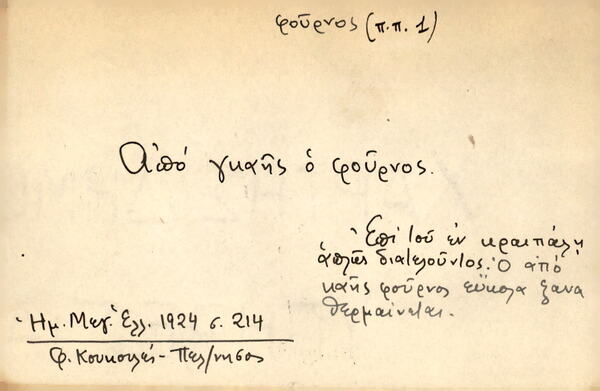 φοῦρνος (π.π. 1)
Ἀπό γκαῆς ὁ φοῦρνος.
Ἐπί τοῦ ἐν κραιπάλῃ
ἁπλῶς διατελοῦντος. Ὁ ἀπό
καῆς φοῦρνος εὔκολα ξανα
θερμαίνεται.
Ἡμ. Μεγ. Ἑλλ. 1924 σ. 214
Φ. Κουκουλές - Πελ/νησος